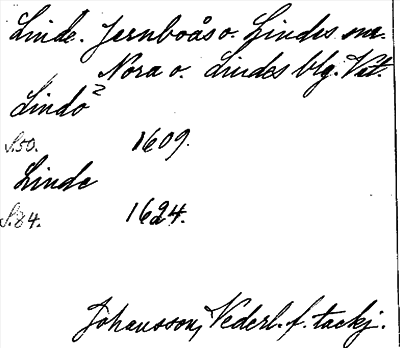 Linde. Jernboås o. Lindes sn.
Nora o. Lindes blg. Vst.
Lindo 2
S.50. 1609.
Linde
S.84. 1624.
Johansson, Nederl. f. tackj.